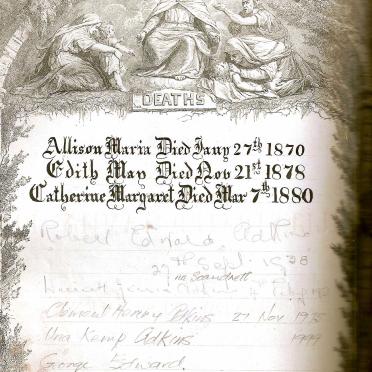 DEATHS
Allison Maria Died Jany 27th 1870
Edith May Died Nov 21st 1878
Catherine Margaret Died Mar 7th 1880
Robert Edward Adkins
27th Sept 1928
Clement Henry Adkins 27 Nov 1935
Una Kemp Adkins 1999
George Edward